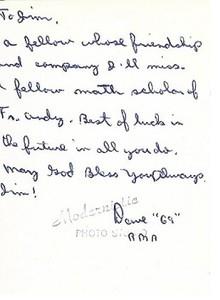 To Jim,
a fellow whose friendship
and company I'll miss.
A fellow math scholar of
Fr. Andy. Best of luck in
the future in all you do.
May God Bless You Always
Jim!
Modernistic
PHOTO
Dave "69"